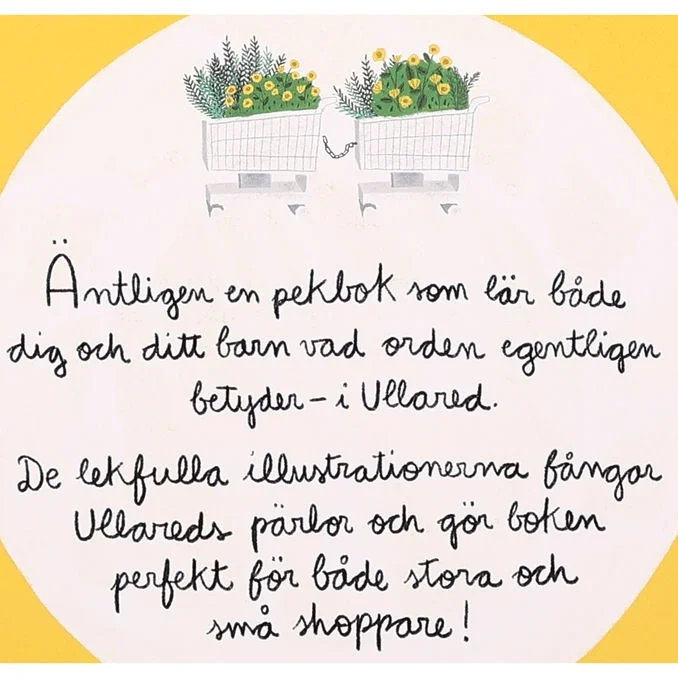 Äntligen en pekbok som lär både
dig och ditt barn vad orden egentligen
betyder – i Ullared.
De lekfulla illustrationerna fångar
Ullareds pärlor och gör boken
perfekt för både stora och
små shoppare!